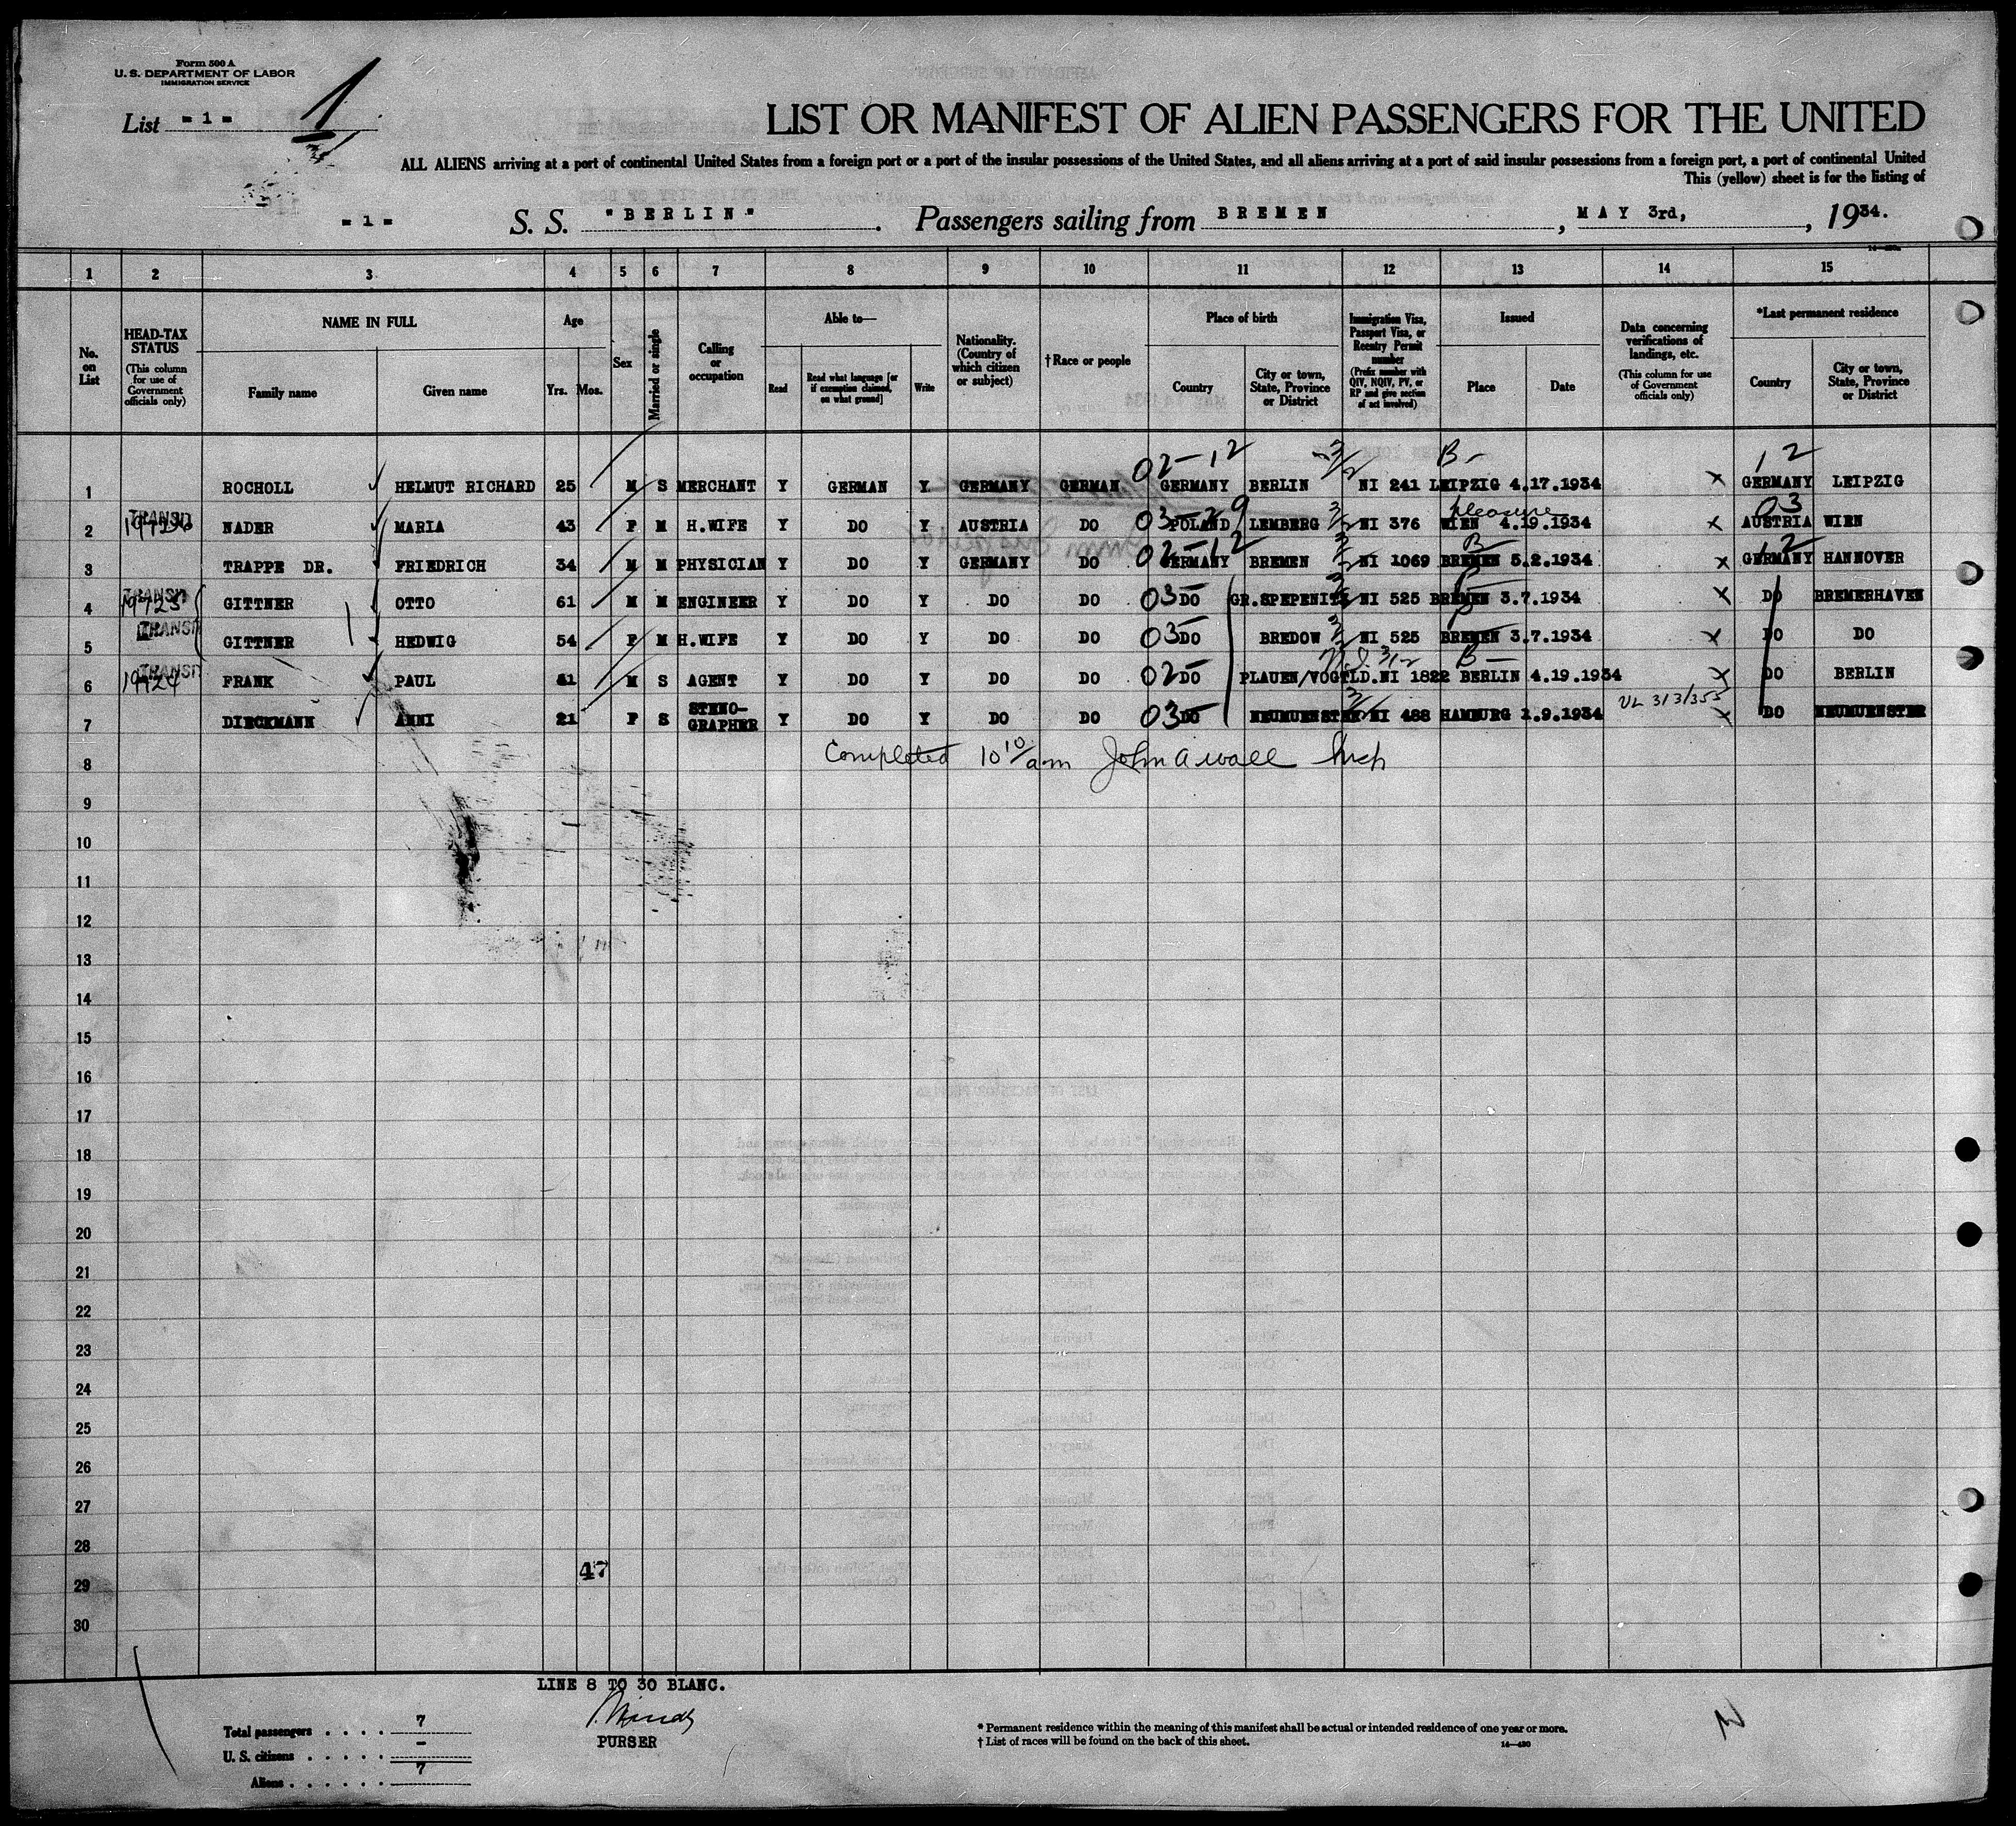 Form 500 A
U. S. DEPARTMENT OF LABOR
IMMIGRATION SERVICE
List - 1 - 1
LIST OR MANIFEST OF ALIEN PASSENGERS FOR THE UNITED
ALL ALIENS arriving at a port of continental United States from a foreign port or a port of the insular possessions of the United States, and all aliens arriving at a port of said insular possessions from a foreign port, a port of continental United
This (yellow) sheet is for the listing of
- 1 - S. S. "BERLIN". Passengers sailing from BREMEN, MAY 3rd, , 1934.
1 2 3 4 5 6 7 8 9 10 11 12 13 14 15
No. on List
HEAD-TAX STATUS
(This column for use of Government officials only)
NAME IN FULL
Family name
Given name
Age
Yrs. Mos.
Sex
Married or single
Calling or occupation
Able to—
Read
Read what language [or if exemption claimed, on what ground]
Write
Nationality. (Country of which citizen or subject)
† Race or people
Place of birth
Country
City or town, State, Province or District
Immigration Visa, Passport Visa, or Reentry Permit number
(Prefix number with QIV, NQIV, PV, or RP and give section of act involved)
Issued
Place
Date
Data concerning verifications of landings, etc.
(This column for use of Government officials only)
*Last permanent residence
Country
City or town, State, Province or District
02-12 3/2 B- 12
1 ROCHOLL HELMUT RICHARD 25 M S MERCHANT Y GERMAN Y GERMANY GERMAN GERMANY BERLIN NI 241 LEIPZIG 4.17.1934 x GERMANY LEIPZIG
03-29 pleasure 03
2 TRANSIT NADER MARIA 43 F M H.WIFE Y DO Y AUSTRIA DO POLAND LEMBERG 3/2 NI 376 WIEN 4.19.1934 x AUSTRIA WIEN
02-12 B 12
3 TRAPPE DR. FRIEDRICH 34 M M PHYSICIAN Y DO Y GERMANY DO GERMANY BREMEN 3/2 NI 1069 BREMEN 5.2.1934 x GERMANY HANNOVER
4 TRANSIT 19723 GITTNER OTTO 61 M M ENGINEER Y DO Y DO DO 03- DO NI 525 BREMEN 3.7.1934 x DO BREMERHAVEN
5 TRANSIT GITTNER HEDWIG 54 F M H.WIFE Y DO Y DO DO 03- DO BREDOW NI 525 BREMEN 3.7.1934 x DO DO
N.I. 3/2 B-
6 TRANSIT 19724 FRANK PAUL 41 M S AGENT Y DO Y DO DO 02- DO PLAUEN/VOGTLD. NI 1822 BERLIN 4.19.1934 x DO BERLIN
7 DIECKMANN ANNI 21 F S STENO-GRAPHER Y DO Y DO DO 03- DO NEUMUENSTER NI 488 HAMBURG 1.9.1934 VL 313/355 x DO NEUMUENSTER
Completed 10 10/am John A Wall Insp
8
9
10
11
12
13
14
15
16
17
18
19
20
21
22
23
24
25
26
27
28
47
29
30
LINE 8 TO 30 BLANC.
PURSER
Total passengers . . . . 7
U. S. citizens . . . . . -
Aliens . . . . . 7
* Permanent residence within the meaning of this manifest shall be actual or intended residence of one year or more.
† List of races will be found on the back of this sheet.
14—480